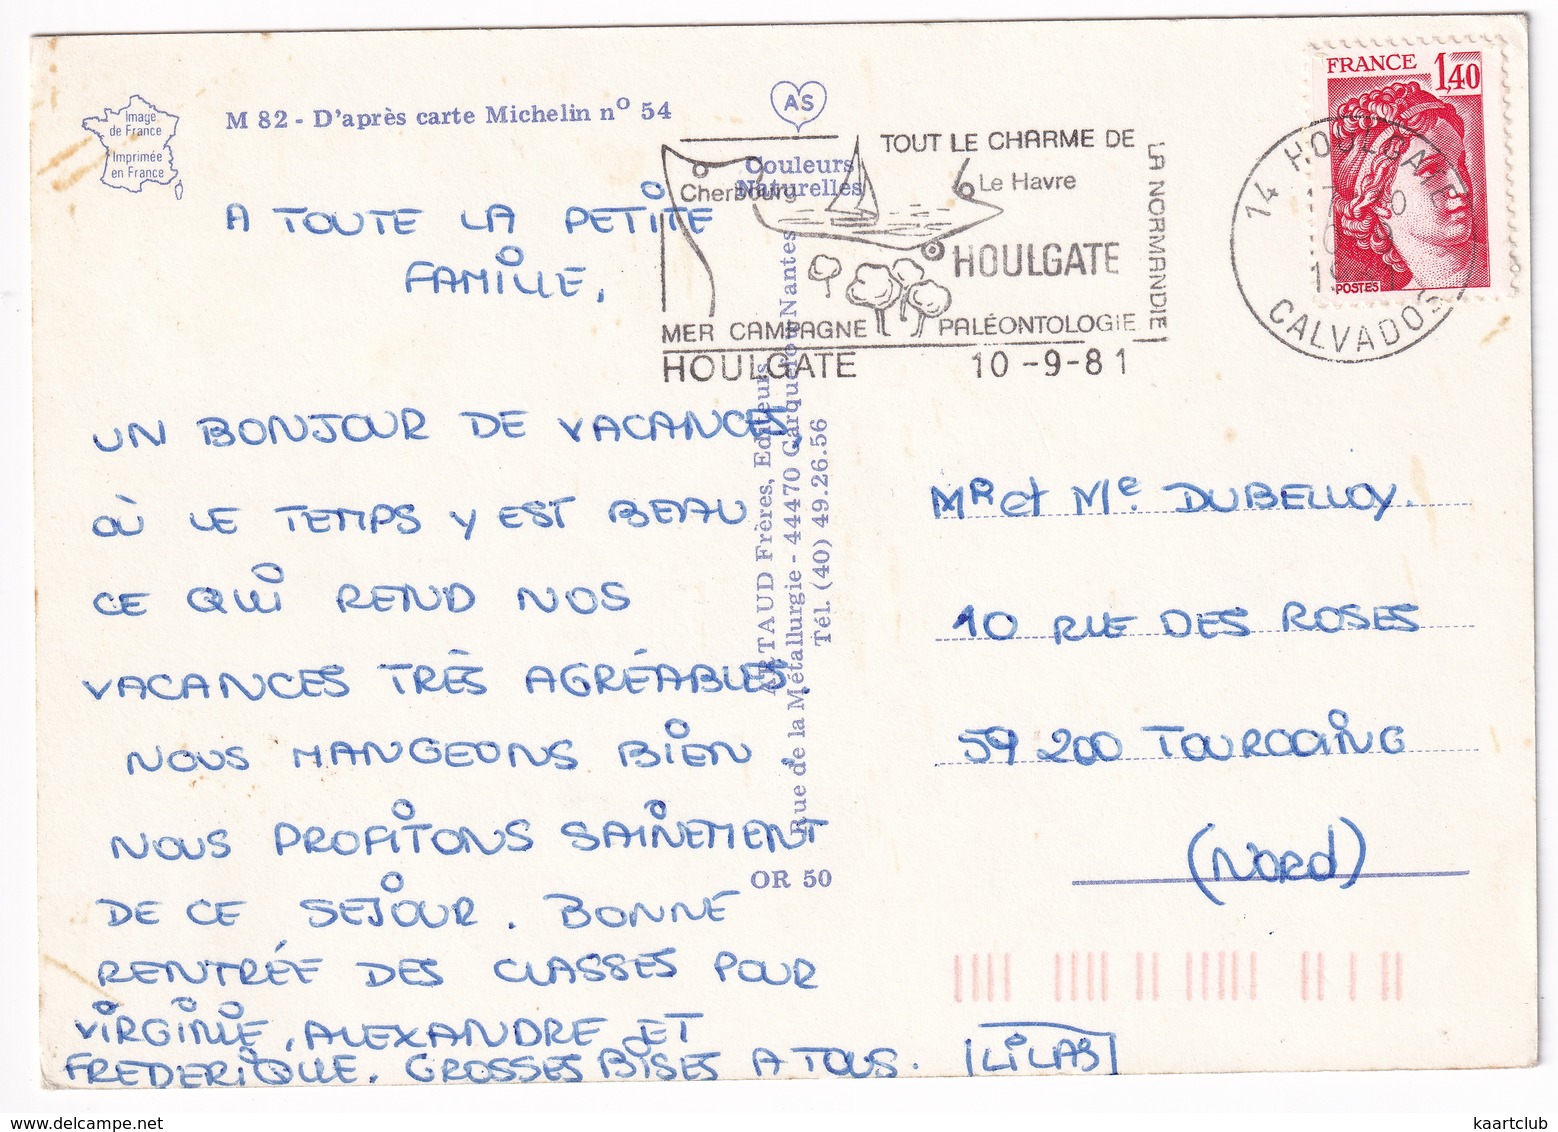 Image
de France
Imprimée
en France
M 82 - D'après carte Michelin nº 54
AS
Couleurs
Naturelles
FRANCE 1,40
POSTES
TOUT LE CHARME DE
LA NORMANDIE
Cherbourg
Le Havre
HOULGATE
MER CAMPAGNE PALÉONTOLOGIE
HOULGATE 10-9-81
14 HOULGATE
CALVADOS
A TOUTE LA PETITE
FAMILLE,
UN BONJOUR DE VACANCES,
OÙ LE TEMPS Y EST BEAU
CE QUI REND NOS
VACANCES TRÈS AGRÉABLES.
NOUS MANGEONS BIEN
NOUS PROFITONS SAINEMENT
DE CE SEJOUR. BONNE
RENTRÉE DES CLASSES POUR
VIRGINIE, ALEXANDRE ET
FREDERIQUE. GROSSES BISES A TOUS. LILAS
ARTAUD Frères, Editeurs
Rue de la Métallurgie - 44470 Carquefou-Nantes
Tél. (40) 49.26.56
OR 50
MR et Me. DUBELLOY.
10 RUE DES ROSES
59 200 TOURCOING
(NORD)
kaartclub